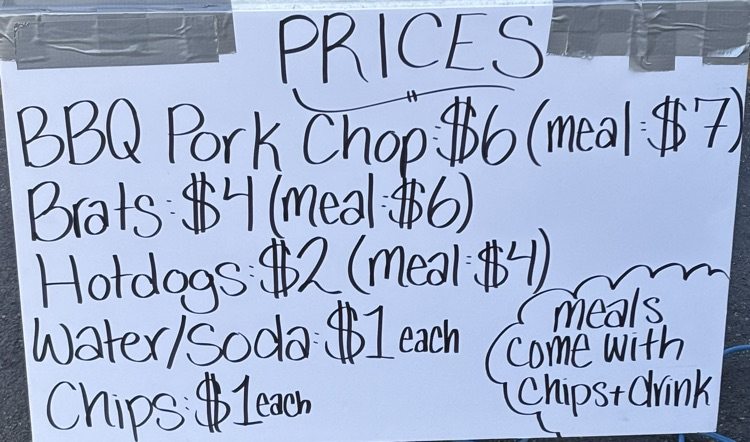 PRICES
BBQ Pork Chop: $6 (meal: $7)
Brats: $4 (meal: $6)
Hotdogs: $2 (meal: $4)
Water/Soda: $1 each
Chips: $1 each
meals
come with
chips + drink